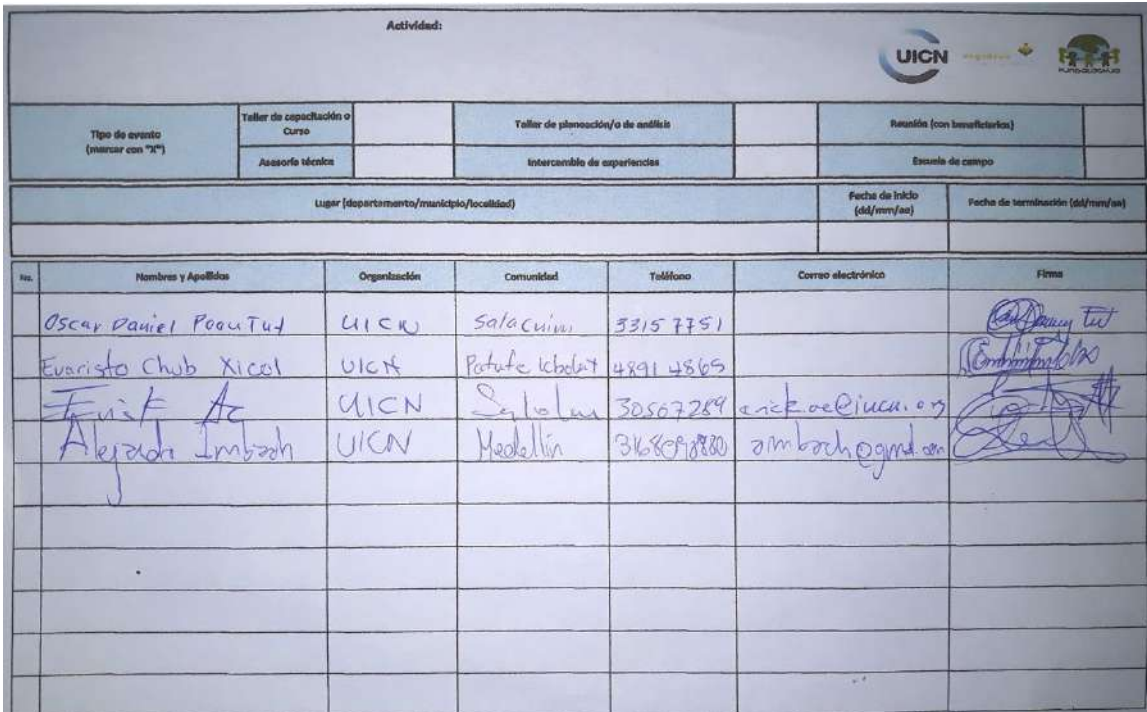 Actividad:
UICN
FUNDALACHUÁ
Tipo de evento
(marcar con "X")
Taller de capacitación o
Curso
Taller de planeación/o de análisis
Reunión (con beneficiarios)
Asesoría técnica
Intercambio de experiencias
Escuela de campo
Lugar (departamento/municipio/localidad)
Fecha de inicio
(dd/mm/aa)
Fecha de terminación (dd/mm/aa)
No. Nombres y Apellidos Organización Comunidad Teléfono Correo electrónico Firma
Oscar Daniel Tut UICN Salacuim 33157751
Evaristo Chub Xicol UICN 4891 4865
Ac UICN 30567289 erick.ac@iucn.org
Imbach UICN Medellín